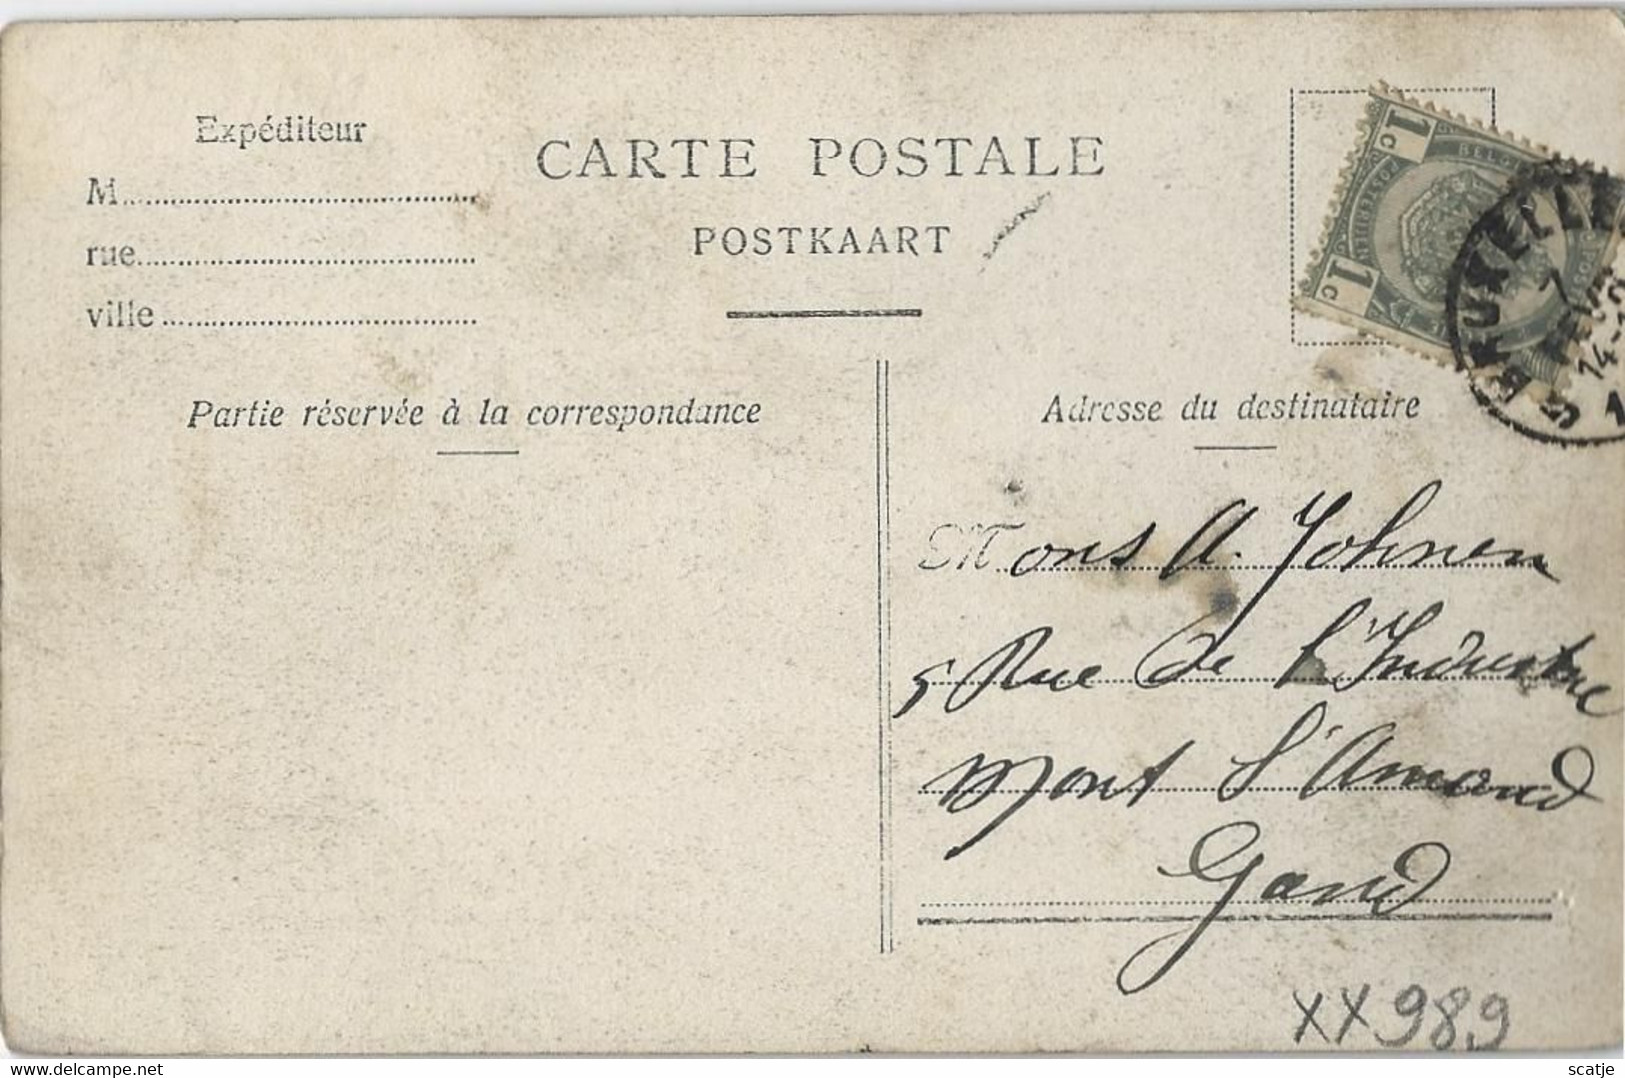 Expéditeur
M
rue
ville
CARTE POSTALE
POSTKAART
1c
BELGI
1c
BRUXELLES
7
14-
1
Partie réservée à la correspondance
Adresse du destinataire
Mons A. Johnen
5 Rue de l'Industrie
Mont S'Amand
Gand
XX989
© delcampe.net
scatje